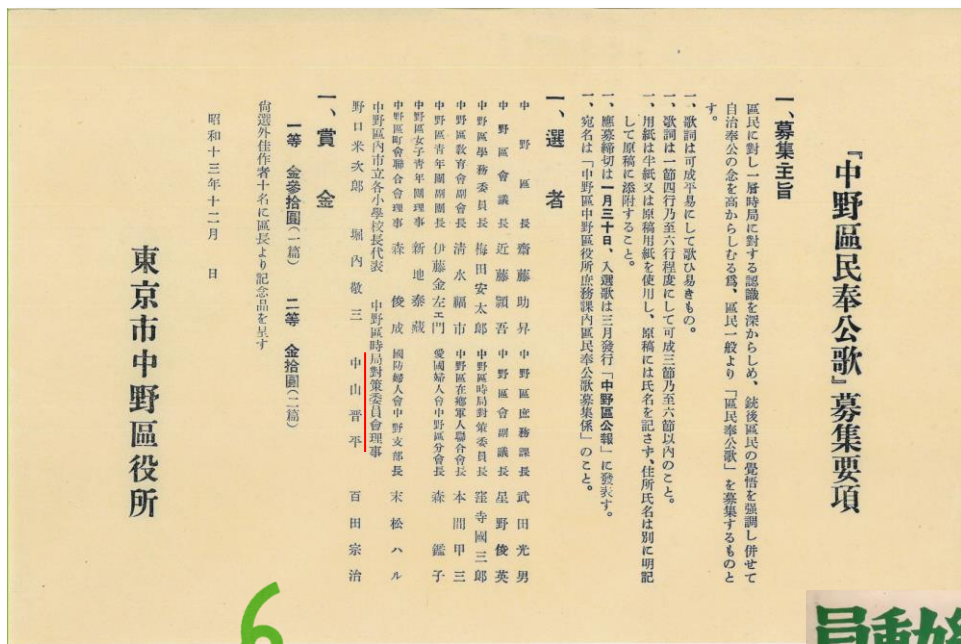 『中野區民奉公歌』募集要項
一、募集主旨
區民に對し一層時局に對する認識を深からしめ、銃後區民の覺悟を强調し併せて
自治奉公の念を高からしむる爲、區民一般より「區民奉公歌」を募集するものと
す。
一、歌詞は可成平易にして歌ひ易きもの。
一、歌詞は一節四行乃至六行程度にして可成三節乃至六節以内のこと。
一、用紙は半紙又は原稿用紙を使用し、原稿には氏名を記さず、住所氏名は別に明記
して原稿に添附すること。
一、應募締切は一月三十日、入選歌は三月發行「中野區公報」に發表す。
一、宛名は「中野區中野區役所庶務課内區民奉公歌募集係」のこと。
一、選者
中野區長 齋藤助昇 中野區庶務課長 武田光男
中野區會議長 近藤潁吾 中野區會副議長 星野俊英
中野區學務委員長 梅田安太郎 中野區時局對策委員長 窪寺國三郎
中野區教育會副會長 清水福市 中野區在鄕軍人聯合會長 本間甲三
中野區青年團副團長 伊藤金左エ門 愛國婦人會中野區分會長 森鑑子
中野區女子青年團理事 新地泰藏 國防婦人會中野支部長 末松ハル
中野區町會聯合會理事 森俊成
中野區内市立各小學校長代表 中野區時局對策委員會理事
野口米次郎 堀内敬三 中山晋平 百田宗治
一、賞金
一等 金參拾圓(一篇) 二等 金拾圓(二篇)
尙選外佳作者十名に區長より記念品を呈す
昭和十三年十二月 日
東京市中野區役所
6